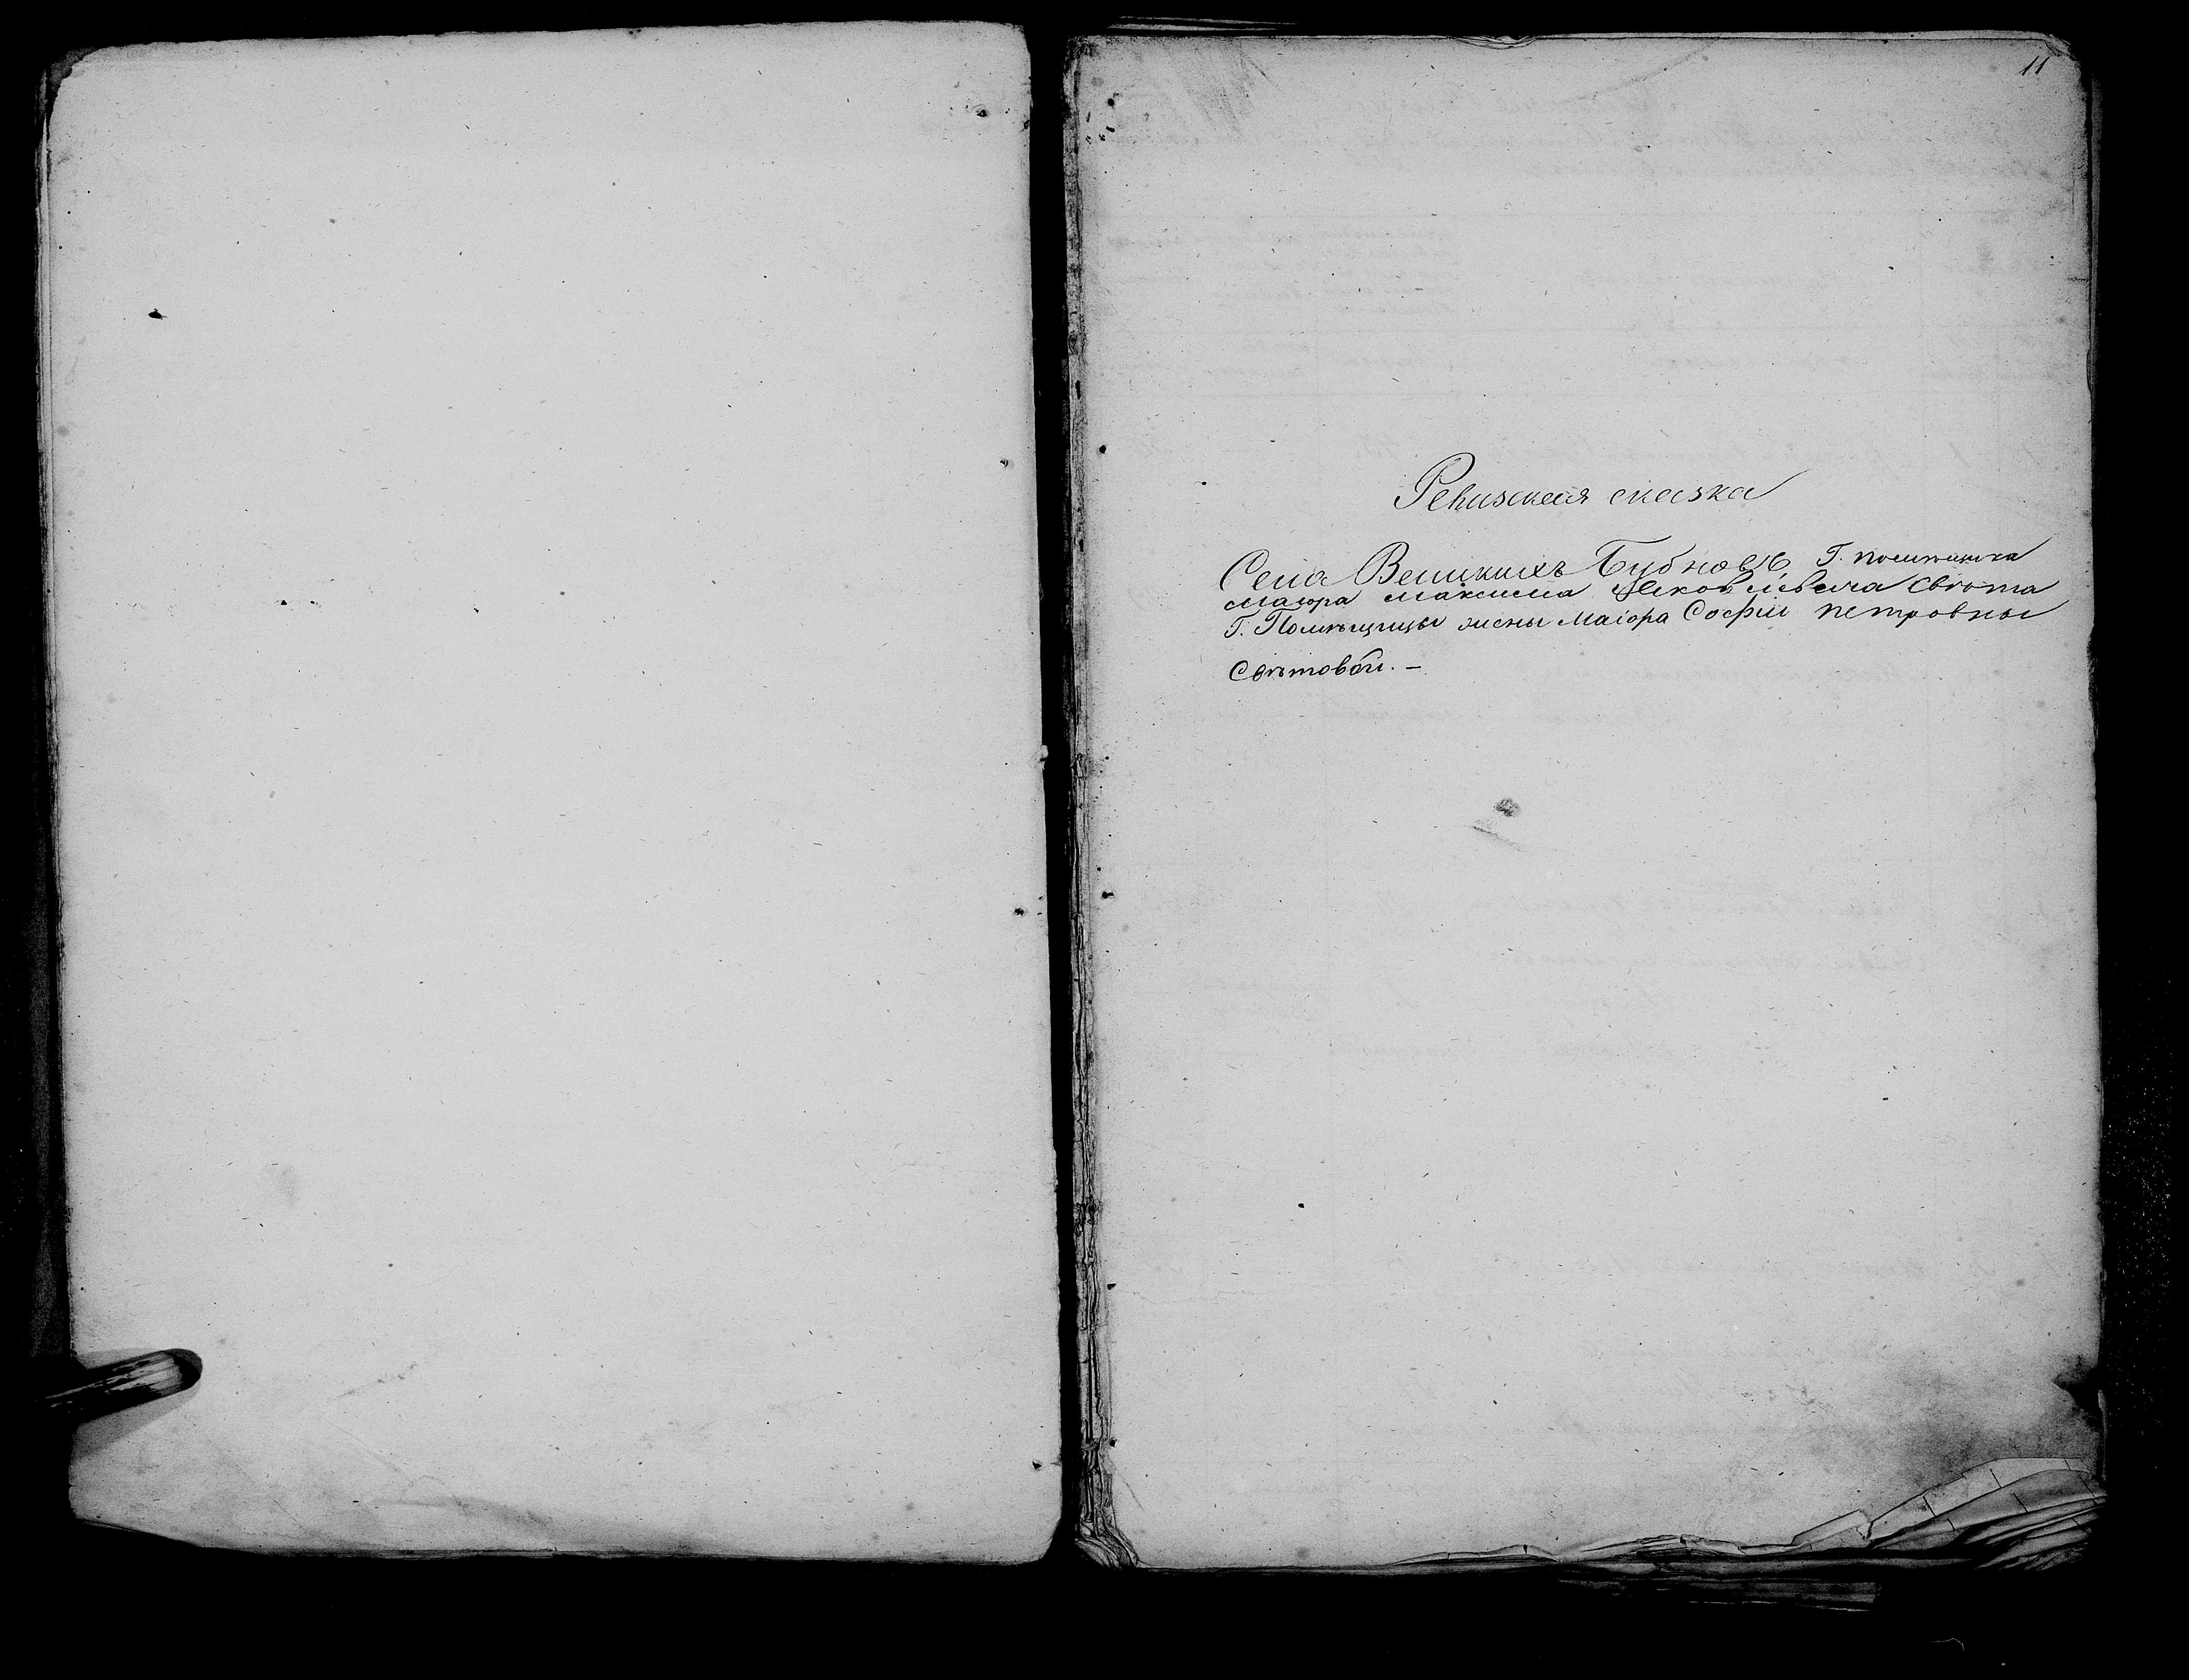 11
Ревизская сказка
Села Великихъ Бубновъ Г. помѣщика
маіора Максима Яковлевича Свѣта
Г. Помѣщицы жены Маіора Софіи Петровны
Свѣтовой. –